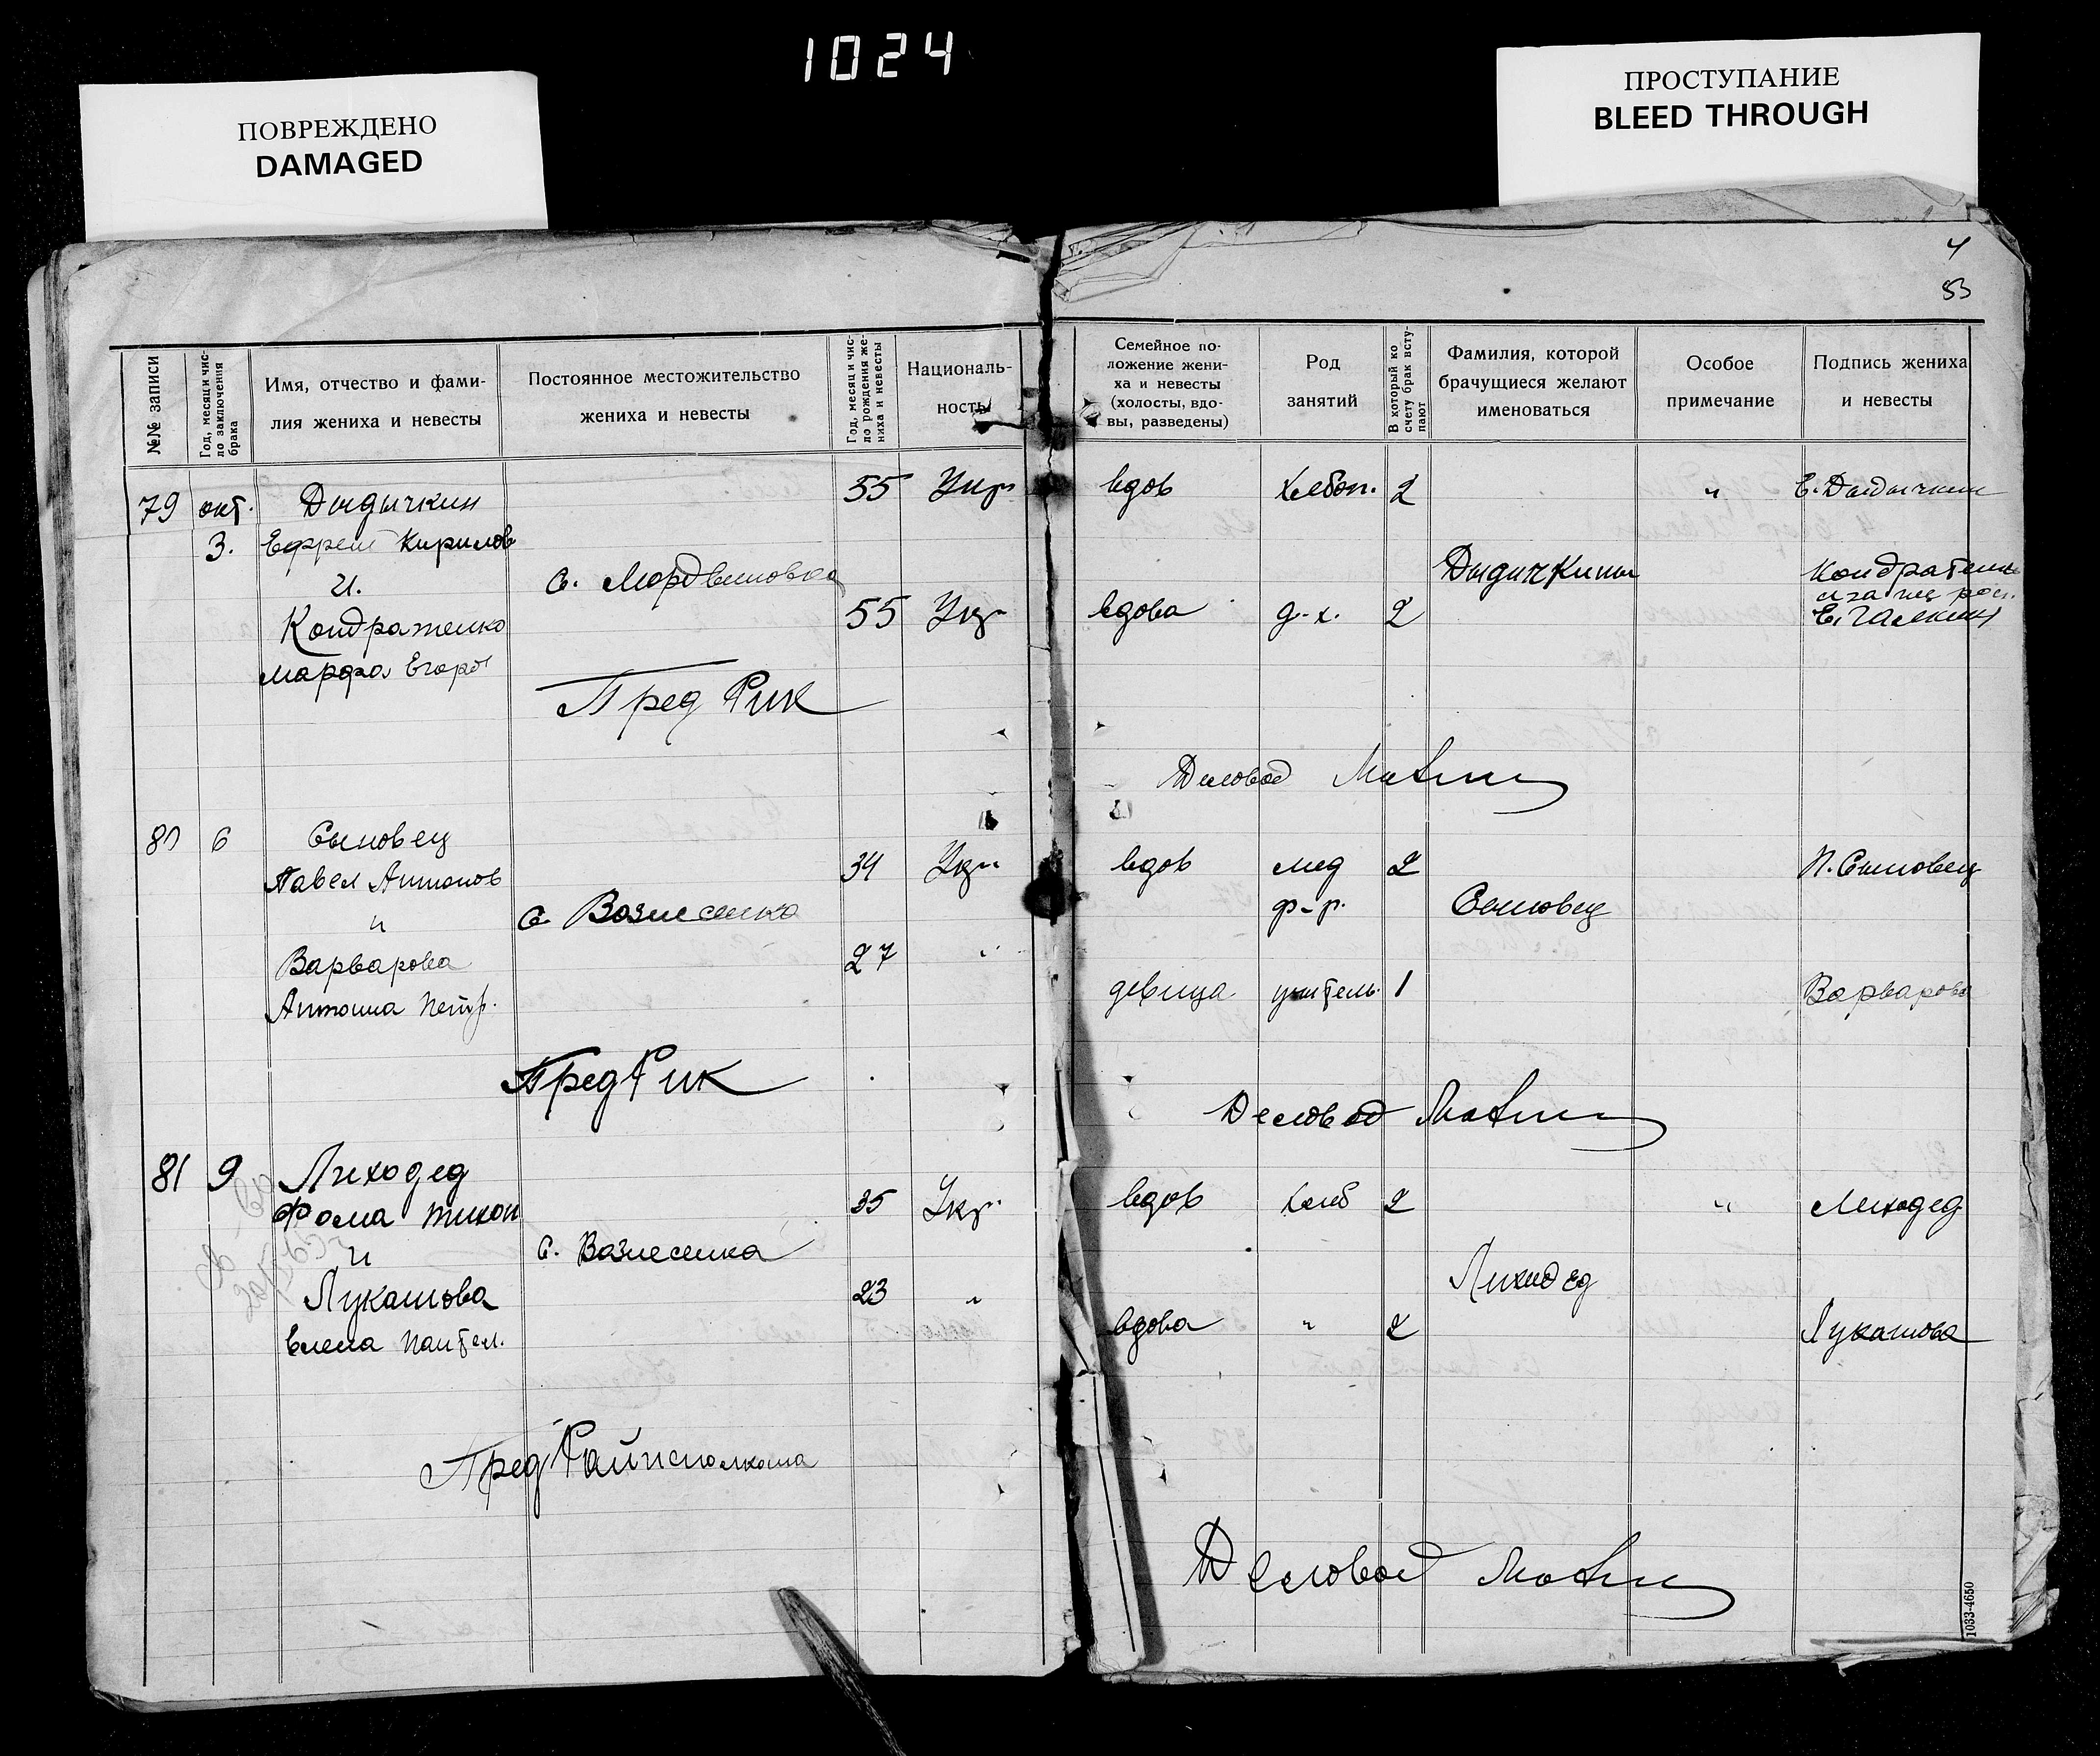 1024
ПОВРЕЖДЕНО
DAMAGED
ПРОСТУПАНИЕ
BLEED THROUGH
4
53
№№ записи
Год, месяц и чис-
ло заключения
брака
Имя, отчество и фами-
лия жениха и невесты
Постоянное местожительство
жениха и невесты
Год, месяц и чис-
ло рождения же-
ниха и невесты
Националь-
ность
Семейное по-
ложение жени-
ха и невесты
(холосты, вдо-
вы, разведены)
Род
занятий
В который ко
счету брак всту-
пают
Фамилия, которой
брачущиеся желают
именоваться
Особое
примечание
Подпись жениха
и невесты
79 окт. Дыдычкин 55 Укр вдов Хлебоп. 2 " Е. Дыдычкин
3. Ефрем Кирилов
и. с. Мордвиновка Дыдычкины Кондратенко
Кондратенко 55 Укр вдова д.х. 2 и за нее рос.
Е. Галкин
Марфа Егоро
Пред Рик
Деловод
80 6 Сыновец
Павел Антонов 34 Укр вдов мед 2 П. Сыновец
и с Вознесенка ф-р. Сыновец
Варварова 27 "
Антонина Петр. девица учитель. 1 Варварова
Пред Рик
Деловод
81 9 Лиходед
Фома Тихон 35 Укр вдов хлеб 2 " Лиходед
и с. Вознесенка
Лукашова 23 " Лиходед
Елена Пантел. вдова " 2 Лукашова
Пред Райисполкома
Деловод
1033-4650